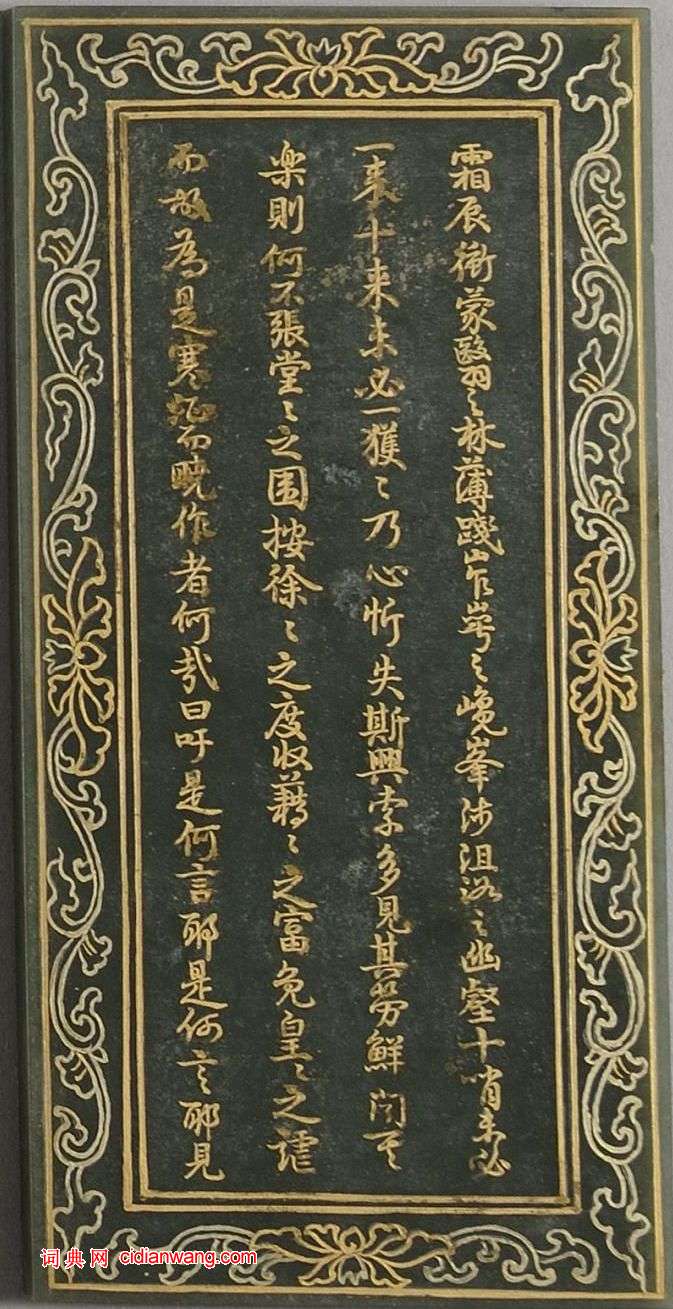 霜辰衝蒙翳〻林薄踐岝崿〻巉峯涉沮洳〻幽壑十哨未必
一来十来未必一獲〻乃心忻失斯興索多見其勞鮮聞其
樂則何不張堂〻之圍按徐〻之度收藉〻之富免皇〻之謔
而故為是寒婗而曉作者何哉曰吁是何言耶是何言耶見
词典网 cidianwang.com